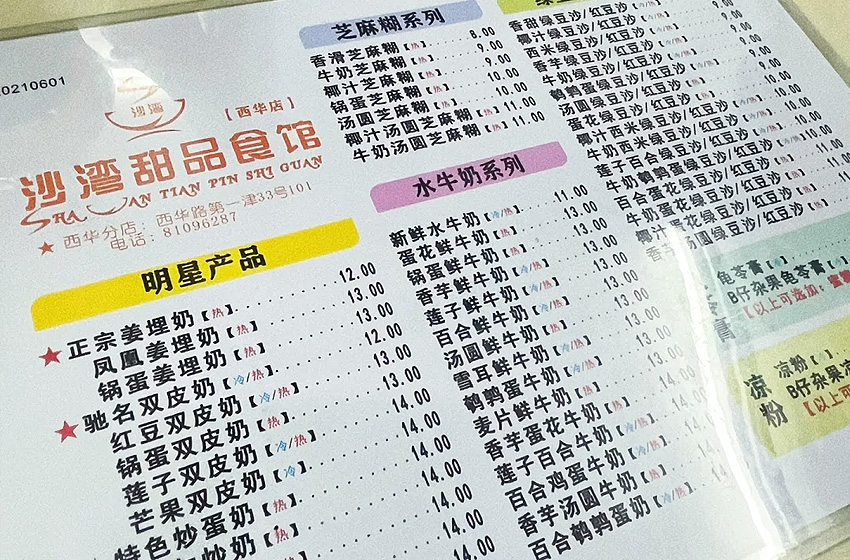 0210601
沙湾
【西华店】
沙湾甜品食馆
SHA WAN TIAN PIN SHI GUAN
★ 西华分店：西华路第一津33号101
电话：81096287
明星产品
★正宗姜埋奶【热】 12.00
凤凰姜埋奶【热】 13.00
锅蛋姜埋奶【热】 13.00
★驰名双皮奶【冷/热】 12.00
红豆双皮奶【冷/热】 13.00
锅蛋双皮奶【热】 13.00
莲子双皮奶【冷/热】 14.00
芒果双皮奶【冷】 14.00
特色炒蛋奶【热】 14.00
炒奶【热】
芝麻糊系列
香滑芝麻糊【热】 8.00
牛奶芝麻糊【热】 9.00
椰汁芝麻糊【热】 9.00
锅蛋芝麻糊【热】 10.00
汤圆芝麻糊【热】 10.00
椰汁汤圆芝麻糊【热】 11.00
牛奶汤圆芝麻糊【热】 11.00
水牛奶系列
新鲜水牛奶【冷/热】 11.00
蛋花鲜牛奶【热】 13.00
锅蛋鲜牛奶【热】 13.00
香芋鲜牛奶【冷/热】 13.00
莲子鲜牛奶【冷/热】 13.00
百合鲜牛奶【冷/热】 13.00
汤圆鲜牛奶【热】 13.00
雪耳鲜牛奶【冷/热】 13.00
鹌鹑蛋牛奶【冷/热】
麦片鲜牛奶【热】
香芋蛋花牛奶【热】
莲子百合牛奶【冷/热】
百合鸡蛋牛奶【冷/热】
香芋汤圆牛奶【热】
百合鹌鹑蛋奶【冷/热】
香甜绿豆沙/红豆沙【热】
椰汁绿豆沙/红豆沙【热】
西米绿豆沙/红豆沙【热】
香芋绿豆沙/红豆沙【热】
牛奶绿豆沙/红豆沙【热】
鹌鹑蛋绿豆沙/红豆沙【热】
汤圆绿豆沙/红豆沙【热】
蛋花绿豆沙/红豆沙【热】
椰汁西米绿豆沙/红豆沙【热】
牛奶西米绿豆沙/红豆沙【热】
莲子百合绿豆沙/红豆沙【热】
牛奶鹌鹑蛋绿豆沙/红豆沙【热】
百合蛋花绿豆沙/红豆沙【热】
牛奶蛋花绿豆沙/红豆沙【热】
椰汁蛋花绿豆沙/红豆沙【热】
香芋汤圆绿豆沙/红豆沙【热】
龟苓膏
B仔杂果龟苓膏
【以上可选加：蜜
凉粉
凉粉
B仔杂果凉
【以上可